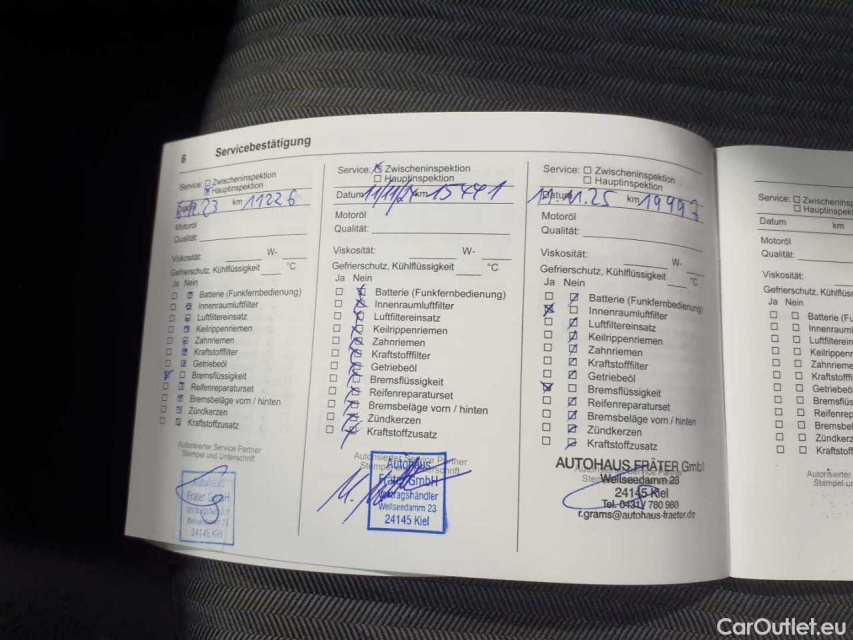 6 Servicebestätigung
Service: Zwischeninspektion
Hauptinspektion
23 km 11226
Motoröl
Qualität:
Viskosität: W-
Gefrierschutz, Kühlflüssigkeit °C
Ja Nein
Batterie (Funkfernbedienung)
Innenraumluftfilter
Luftfiltereinsatz
Keilrippenriemen
Zahnriemen
Kraftstofffilter
Getriebeöl
Bremsflüssigkeit
Reifenreparaturset
Bremsbeläge vorn / hinten
Zündkerzen
Kraftstoffzusatz
Autorisierter Service Partner
Stempel und Unterschrift
Autohaus
Fräter GmbH
Vertragshändler
Wellseedamm 23
24145 Kiel
Service: Zwischeninspektion
Hauptinspektion
Datum 11/11/24 km 15441
Motoröl
Qualität:
Viskosität: W-
Gefrierschutz, Kühlflüssigkeit °C
Ja Nein
Batterie (Funkfernbedienung)
Innenraumluftfilter
Luftfiltereinsatz
Keilrippenriemen
Zahnriemen
Kraftstofffilter
Getriebeöl
Bremsflüssigkeit
Reifenreparaturset
Bremsbeläge vorn / hinten
Zündkerzen
Kraftstoffzusatz
Autorisierter Service Partner
Autohaus
Fräter GmbH
Vertragshändler
Wellseedamm 23
24145 Kiel
Service: Zwischeninspektion
Hauptinspektion
Datum 11.25 km 19997
Motoröl
Qualität:
Viskosität: W-
Gefrierschutz, Kühlflüssigkeit °C
Ja Nein
Batterie (Funkfernbedienung)
Innenraumluftfilter
Luftfiltereinsatz
Keilrippenriemen
Zahnriemen
Kraftstofffilter
Getriebeöl
Bremsflüssigkeit
Reifenreparaturset
Bremsbeläge vorn / hinten
Zündkerzen
Kraftstoffzusatz
AUTOHAUS FRÄTER GmbH
Wellseedamm 23
24145 Kiel
Tel. 0431/ 780 980
r.grams@autohaus-fraeter.de
Service: Zwischeninsp
Hauptinspekt
Datum km
Motoröl
Qualität:
Viskosität:
Gefrierschutz, Kühlflüss
Ja Nein
Batterie (Fu
Innenraum
Luftfilterein
Keilrippen
Zahnrieme
Kraftstofffi
Getriebeö
Bremsflüs
Reifenrep
Bremsbel
Zündkerz
Kraftstoff
Autorisierter
Stempel u
CarOutlet.eu